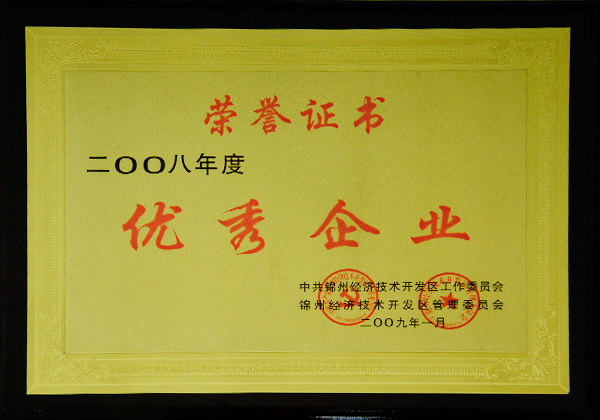 荣誉证书
二〇〇八年度
优秀企业
中共锦州经济技术开发区工作委员会
锦州经济技术开发区管理委员会
二〇〇九年一月